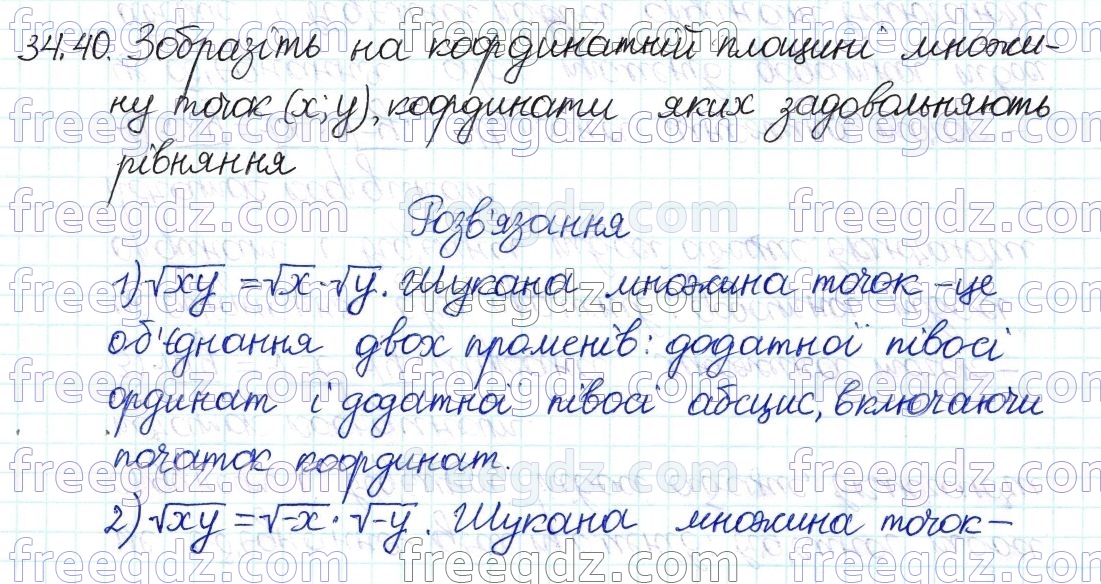 34.40. Зобразіть на координатній площині множи-
ну точок (x; y), координати яких задовольняють
рівняння
Розв'язання
1) √xy = √x · √y. Шукана множина точок – це
об'єднання двох променів: додатної півосі
ординат і додатної півосі абсцис, включаючи
початок координат.
2) √xy = √-x · √-y. Шукана множина точок –
freegdz.com